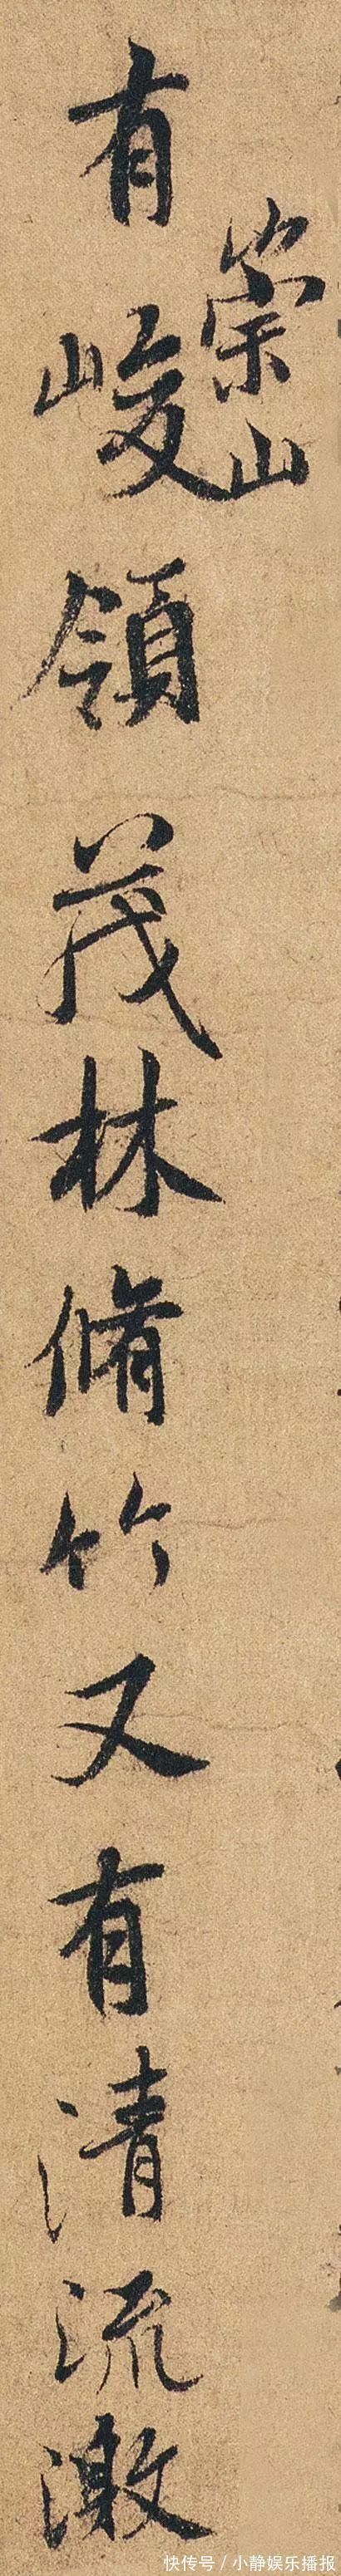 有崇山峻領茂林脩竹又有清流激
快传号/小静娱乐播报